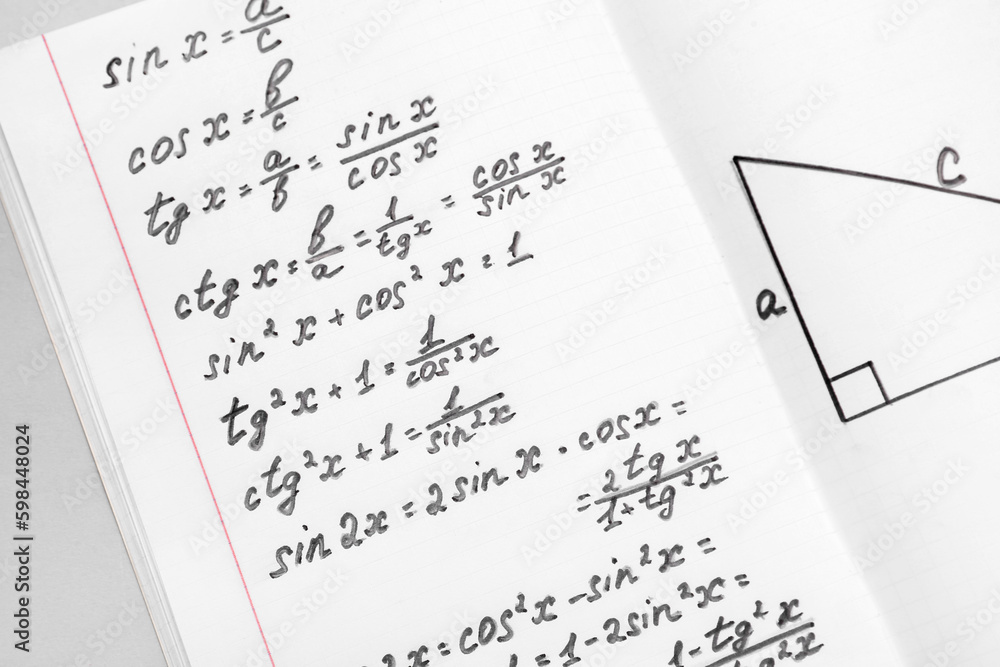 sin x = a/c
cos x = b/c
tg x = a/b = sin x/cos x
ctg x = b/a = 1/tg x = cos x/sin x
sin² x + cos² x = 1
tg² x + 1 = 1/cos² x
ctg² x + 1 = 1/sin² x
sin 2x = 2 sin x · cos x =
= 2 tg x/1 + tg² x
2x = cos² x - sin² x =
= 1 - 2 sin² x =
1 - tg² x/tg² x
c
a
Adobe Stock | #598448024